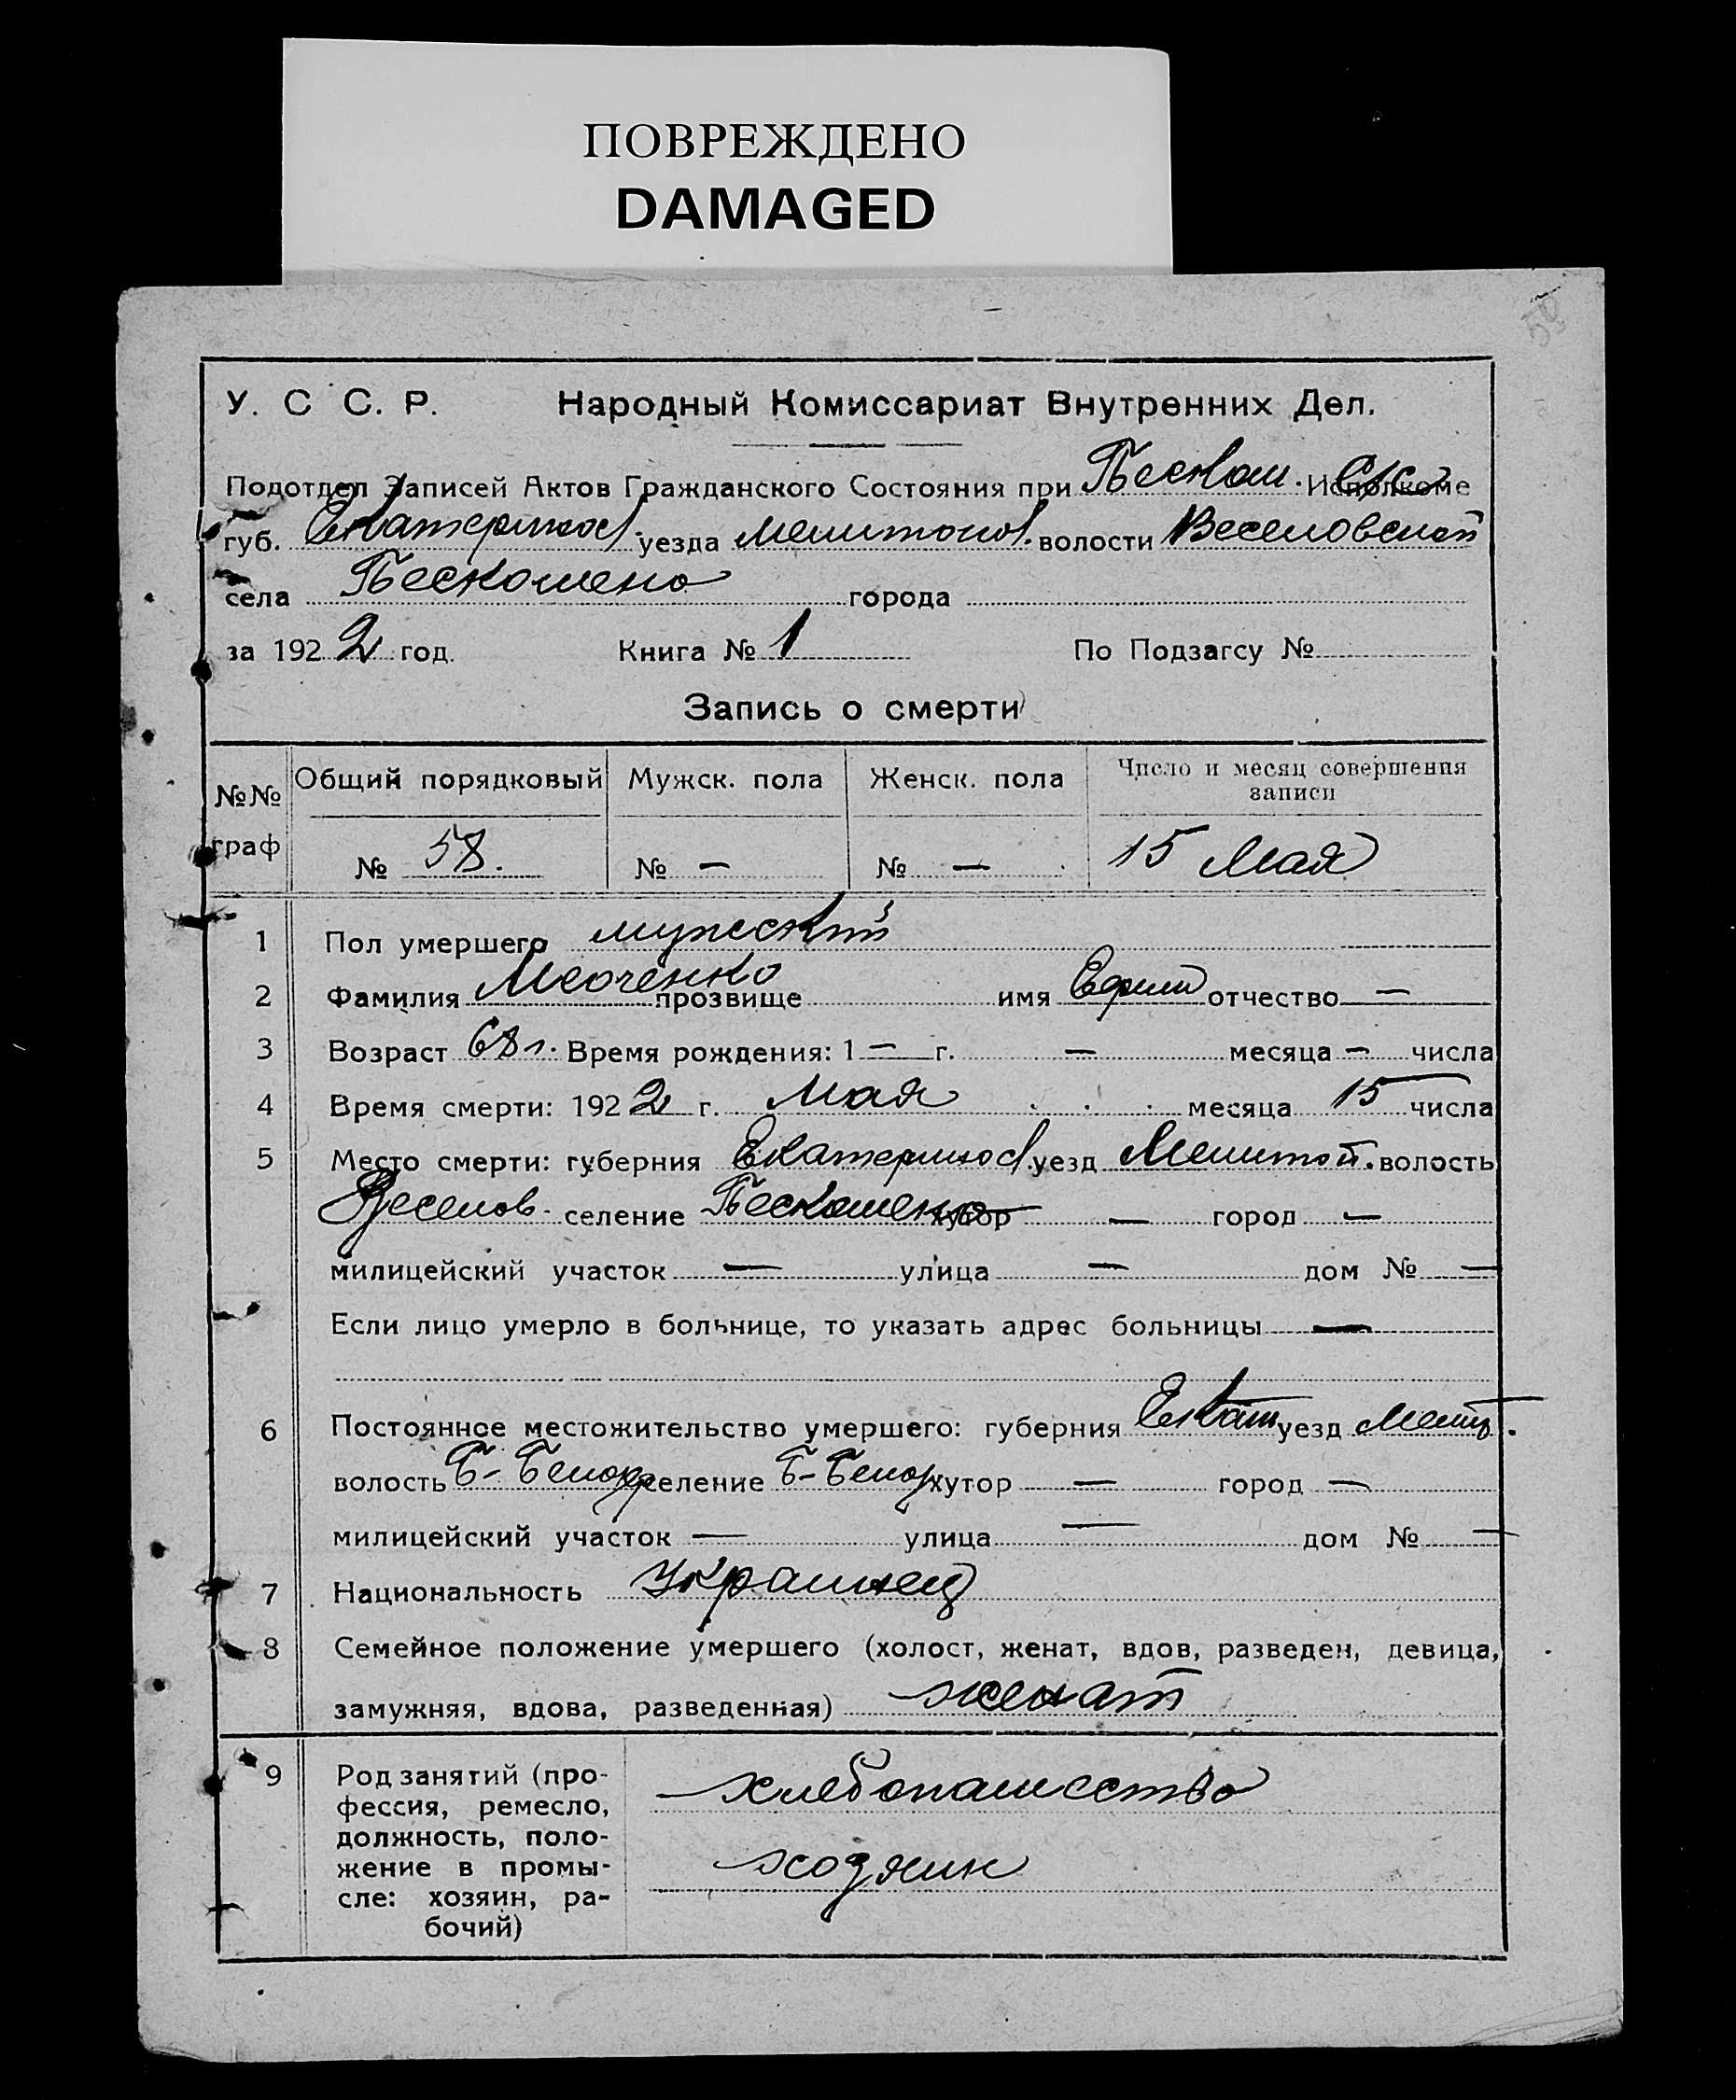 ПОВРЕЖДЕНО
DAMAGED
У. С С. Р. Народный Комиссариат Внутренних Дел.
Подотдел Записей Актов Гражданского Состояния при Исполкоме
губ. Екатериносл. уезда волости Веселовской
села города
за 1922 год. Книга № 1 По Подзагсу №
Запись о смерти
№№ граф Общий порядковый Мужск. пола Женск. пола Число и месяц совершения записи
№ 58. № — № — 15 Мая
1 Пол умершего мужеский
2 Фамилия прозвище имя Ефим отчество —
3 Возраст 68 г. Время рождения: 1 — г. — месяца — числа
4 Время смерти: 1922 г. Мая месяца 15 числа
5 Место смерти: губерния Екатериносл. уезд Мелитоп. волость
Веселов. селение хутор — город —
милицейский участок — улица — дом № —
Если лицо умерло в больнице, то указать адрес больницы —
6 Постоянное местожительство умершего: губерния Екат уезд Мелит.
волость Б-Белозер селение Б-Белоз хутор — город —
милицейский участок — улица — дом № —
7 Национальность Украинец
8 Семейное положение умершего (холост, женат, вдов, разведен, девица,
замужняя, вдова, разведенная) женат
9 Род занятий (про-
фессия, ремесло,
должность, поло-
жение в промы-
сле: хозяин, ра-
бочий)
хлебопашество
хозяин